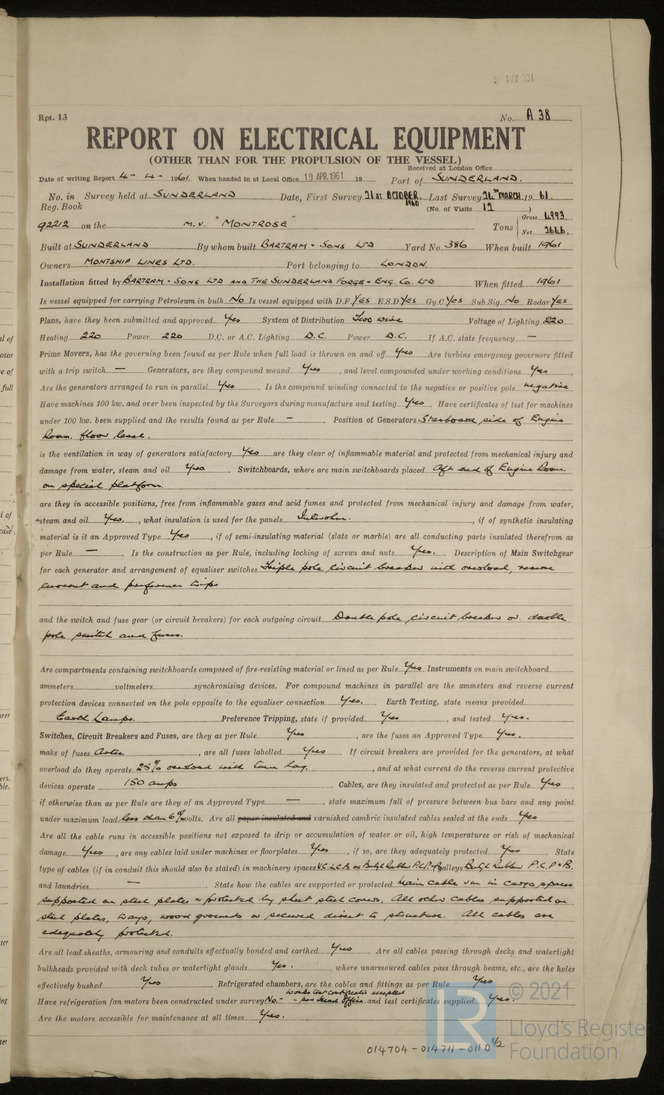 Rpt. 13 No. A 38
REPORT ON ELECTRICAL EQUIPMENT
(OTHER THAN FOR THE PROPULSION OF THE VESSEL)
Received at London Office
Date of writing Report 4-4-1961. When handed in at Local Office 19 APR 1961 19 Port of SUNDERLAND.
No. in Survey held at SUNDERLAND Date, First Survey 21st OCTOBER 1960 Last Survey MARCH, 19 61.
Reg. Book (No. of Visits 12)
92212 on the M.V. "MONTROSE" Tons Gross 4993 Net 2666
Built at SUNDERLAND By whom built BARTRAM & SONS LTD Yard No. 386 When built 1961
Owners MONTSHIP LINES LTD. Port belonging to LONDON.
Installation fitted by BARTRAM & SONS LTD AND THE SUNDERLAND FORGE & ENG. CO. LTD When fitted 1961
Is vessel equipped for carrying Petroleum in bulk No Is vessel equipped with D.F. Yes E.S.D. Yes Gy.C. Yes Sub.Sig. No Radar Yes
Plans, have they been submitted and approved Yes System of Distribution Two wire Voltage of Lighting 220
Heating 220 Power 220 D.C. or A.C. Lighting D.C. Power D.C. If A.C. state frequency —
Prime Movers, has the governing been found as per Rule when full load is thrown on and off Yes Are turbine emergency governors fitted
with a trip switch — Generators, are they compound wound Yes, and level compounded under working conditions Yes,
Are the generators arranged to run in parallel Yes. Is the compound winding connected to the negative or positive pole negative
Have machines 100 kw. and over been inspected by the Surveyors during manufacture and testing Yes Have certificates of test for machines
under 100 kw. been supplied and the results found as per Rule — Position of Generators Starboard side of Engine
Room floor level.
is the ventilation in way of generators satisfactory Yes are they clear of inflammable material and protected from mechanical injury and
damage from water, steam and oil Yes. Switchboards, where are main switchboards placed Aft end of Engine Room
on special platform.
are they in accessible positions, free from inflammable gases and acid fumes and protected from mechanical injury and damage from water,
steam and oil Yes, what insulation is used for the panels, if of synthetic insulating
material is it an Approved Type Yes, if of semi-insulating material (slate or marble) are all conducting parts insulated therefrom as
per Rule — Is the construction as per Rule, including locking of screws and nuts Yes. Description of Main Switchgear
for each generator and arrangement of equaliser switches Triple pole circuit breaker with overload, reverse
current and preference trips
and the switch and fuse gear (or circuit breakers) for each outgoing circuit Double pole circuit breaker or double
pole switch and fuses.
Are compartments containing switchboards composed of fire-resisting material or lined as per Rule Yes Instruments on main switchboard
ammeters voltmeters synchronising devices. For compound machines in parallel are the ammeters and reverse current
protection devices connected on the pole opposite to the equaliser connection Yes. Earth Testing, state means provided
Earth Lamps. Preference Tripping, state if provided Yes, and tested Yes.
Switches, Circuit Breakers and Fuses, are they as per Rule Yes, are the fuses an Approved Type Yes.
make of fuses, are all fuses labelled Yes If circuit breakers are provided for the generators, at what
overload do they operate 25% overload with time lag, and at what current do the reverse current protective
devices operate 150 amps Cables, are they insulated and protected as per Rule Yes,
if otherwise than as per Rule are they of an Approved Type —, state maximum fall of pressure between bus bars and any point
under maximum load less than 6% volts. Are all paper insulated and varnished cambric insulated cables sealed at the ends Yes
Are all the cable runs in accessible positions not exposed to drip or accumulation of water or oil, high temperatures or risk of mechanical
damage Yes, are any cables laid under machines or floorplates Yes, if so, are they adequately protected Yes. State
type of cables (if in conduit this should also be stated) in machinery spaces galleys Butyl Rubber P.C.P. & B.
and laundries — State how the cables are supported or protected Main cables run in cargo spaces
supported on steel plates & protected by sheet steel covers. All other cables supported on
steel plates, trays, wood grounds or secured direct to structure. All cables are
adequately protected.
Are all lead sheaths, armouring and conduits effectually bonded and earthed Yes Are all cables passing through decks and watertight
bulkheads provided with deck tubes or watertight glands Yes. where unarmoured cables pass through beams, etc., are the holes
effectively bushed Yes Refrigerated chambers, are the cables and fittings as per Rule Yes
Have refrigeration fan motors been constructed under survey No. and test certificates supplied Yes.
Are the motors accessible for maintenance at all times Yes.
© 2021
LR
Lloyd's Register
Foundation
014704-014711-0110 1/2